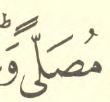 مُصَلًّىؕ وَ